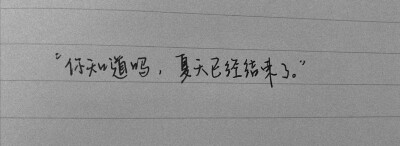 “你知道吗，夏天已经结束了。”